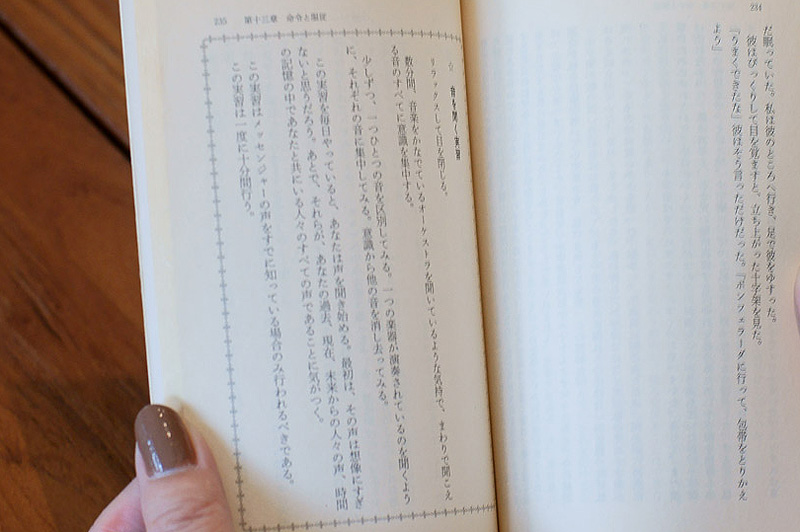 234
だ眠っていた。私は彼のところへ行き、足で彼をゆすった。
彼はびっくりして目を覚ますと、立ち上がった十字架を見た。
「うまくできたな」彼はそう言っただけだった。「ポンフェラーダに行って、包帯をとりかえ
よう」
235　第十三章　命令と服従
音を聞く実習
リラックスして目を閉じる。
数分間、音楽をかなでているオーケストラを聞いているような気持で、まわりで聞こえ
る音のすべてに意識を集中する。
少しずつ、一つひとつの音を区別してみる。一つの楽器が演奏されているのを聞くよう
に、それぞれの音に集中してみる。意識から他の音を消し去ってみる。
この実習を毎日やっていると、あなたは声を聞き始める。最初は、その声は想像にすぎ
ないと思うだろう。あとで、それらが、あなたの過去、現在、未来からの人々の声、時間
の記憶の中であなたと共にいる人々のすべての声であることに気がつく。
この実習はメッセンジャーの声をすでに知っている場合のみ行われるべきである。
この実習は一度に十分間行う。